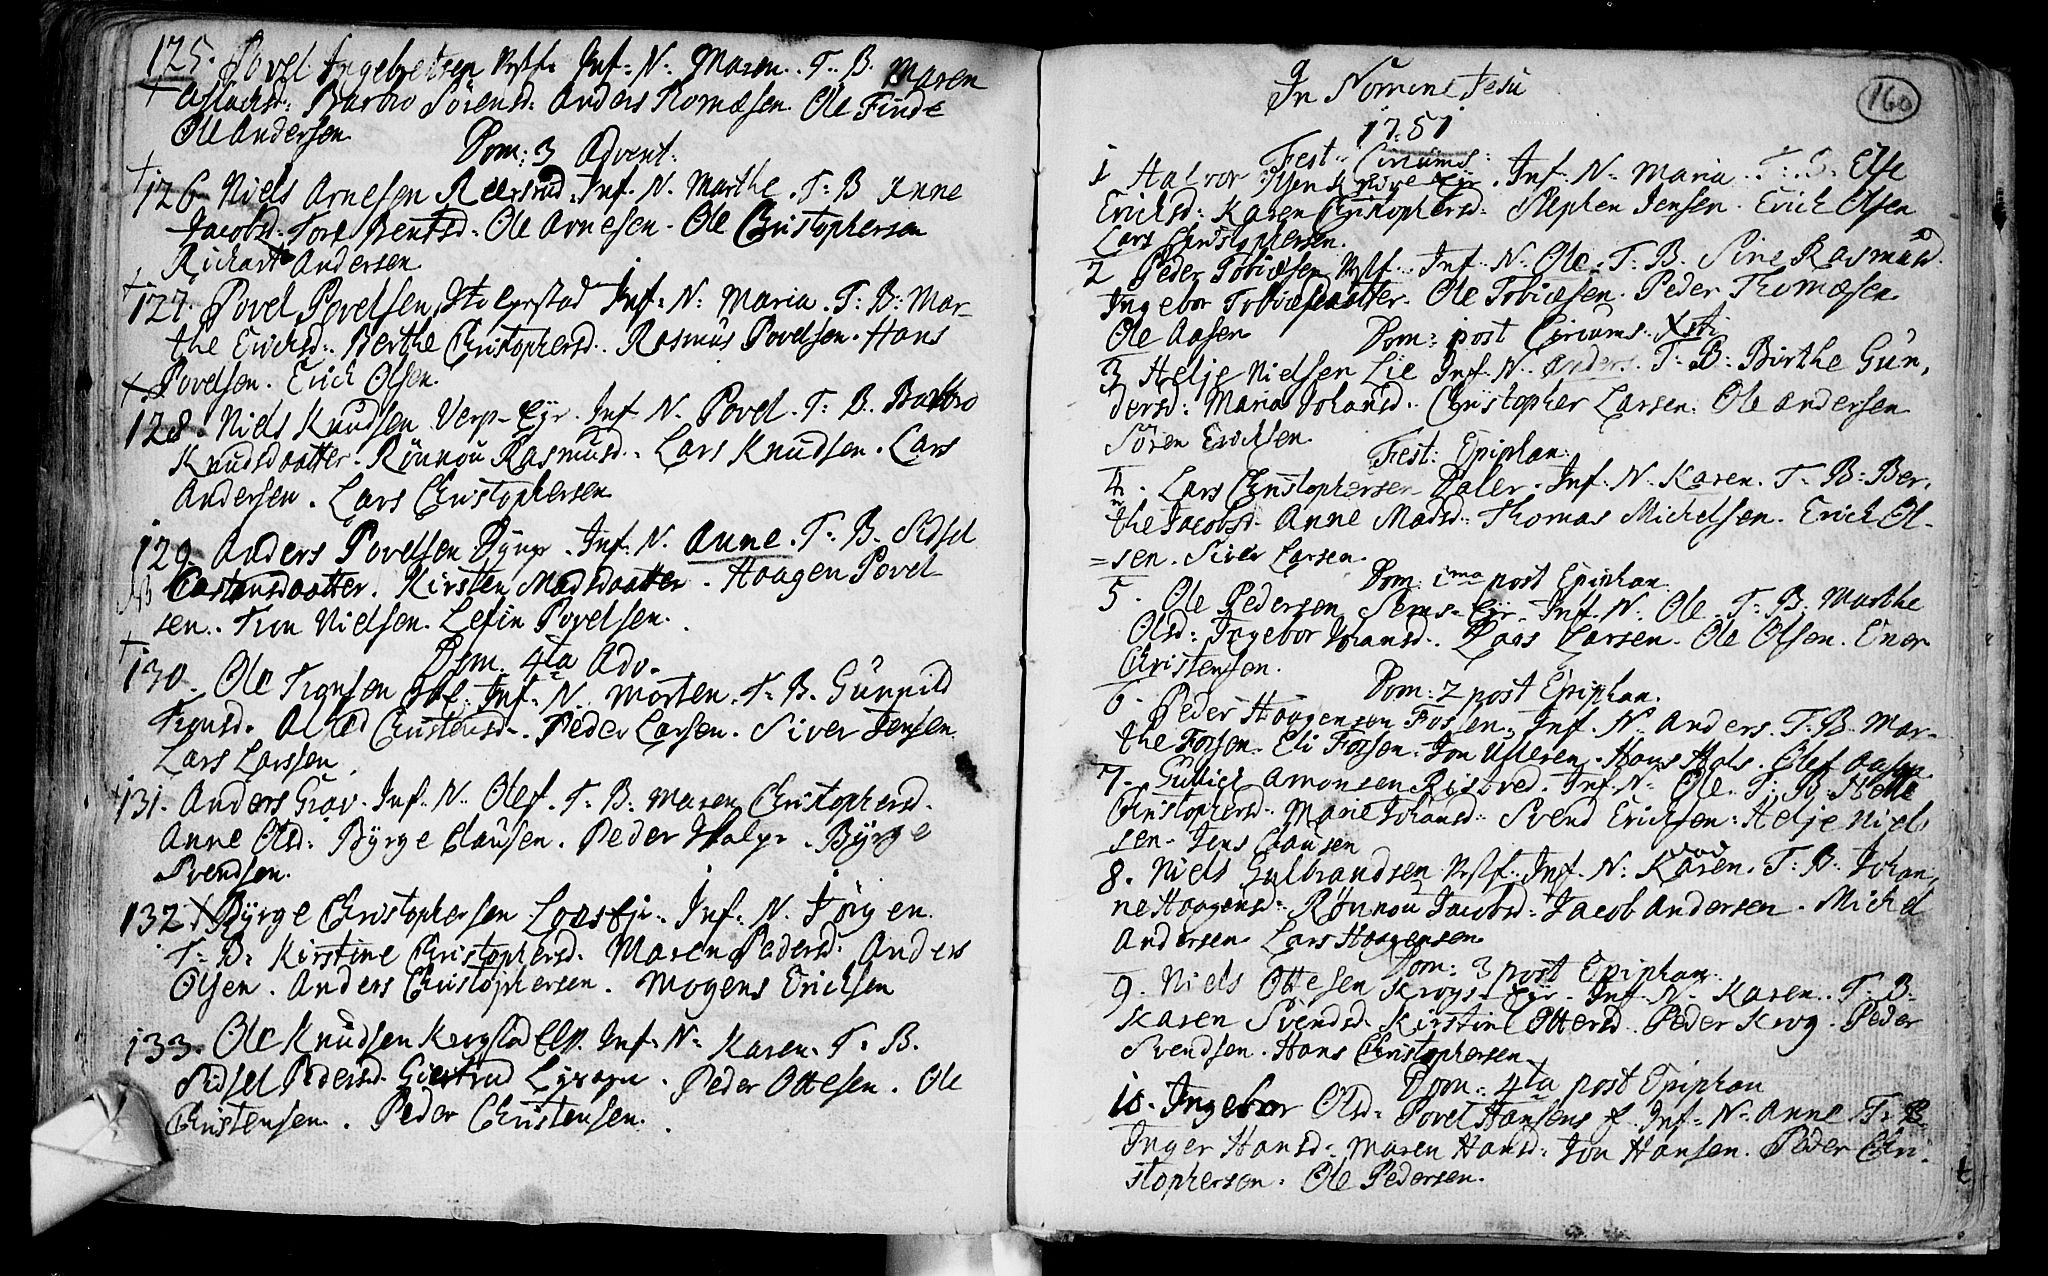 125. Povel Ingebretsen Inf: N. Maren. T. B. Maren
Aslachsd: Barbro Sörensd: Anders Thomæsen. Ole Finde
Ole Andersen
Dom: 3 Advent:
126 Niels Arnesen Inf. N. Marthe. T: B Anne
Jacobsd. Tore Bentsd. Ole Arnesen. Ole Christophersen
Richart Andersen
127. Povel Povelsen, Inf: N: Maria. T: B: Mar-
the Erichsd. Berthe Christophersd. Rasmus Povelsen. Hans
Povelsen. Erich Olsen.
128. Niels Knudsen Verp-Eÿr. Inf. N. Povel. T: B. Barbro
Knudsdaatter. Rönnou Rasmusd. Lars Knudsen. Lars
Andersen. Lars Christophersen
129. Anders Povelsen Inf. N. Anne. T: B. Sidsel
Carstensdaatter. Kirsten Madsdaatter. Haagen Povel
sen. Tron Nielsen. Lefin Povelsen.
Dom. 4ta Adv.
130. Ole Tronsen Inf. N. Morten. T: B. Gunnild
Tronsd. Christensd. Peder Larsen. Siver Jensen
Lars Larssen
131. Anders Grav. Inf. N. Olef. T: B: Maren Christophersd.
Anne Olsd: Bÿrge Clausen. Peder Bÿrge
Svendsen.
132 Bÿrge Christophersen Inf: N. Jörgen
T: B: Kirstine Christophersd. Maren Pedersd: Anders
Olsen. Anders Christophersen. Mogens Erichsen
133. Ole Knudsen Inf: N: Karen. T: B.
Sidsel Pedersd. Giertrud Peder Ottesen. Ole
Christensen. Peder Christensen.
In Nomine Jesu
160
1751
Fest: Circums:
1 Halvor Inf: N: Maria. T: B. Else
Erichsd: Karen Christophersd: Stephen Jensen. Erich Olsen
Lars Christophersen.
2 Peder Tobiæsen Inf. N. Ole. T: B. Sine Rasmusd
Ingebor Tobiæsdaatter. Ole Tobiæsen. Peder Thomæsen
Ole Aasen
Dom: post Circums. Xsti
3 Helje Nielsen Lie Inf. N. Anders. T: B: Birthe Gun,
dersd: Maria Johansd. Christopher Larsen. Ole Andersen
Sören Erichsen.
Fest: Epiphan:
4. Lars Christophersen Daler. Inf. N. Karen. T: B: Ber,
the Jacobsd. Anne Madsd. Thomas Michelsen. Erich Ol-
=sen. Siver Larsen.
Dom: 1ma post Epiphan
5. Ole Pedersen Sems-Eÿr. Inf. N. Ole. T: B. Marthe
Olsd: Ingebor Johansd. Lars Larsen. Ole Olsen. Ener
Christensen.
Dom: 2 post Epiphan.
6. Peder Haagensen Fossen. Inf. N. Anders. T: B. Mar-
the Fossen. Eli Fossen. Jon Ulleren. Hans Hals. Olef Aasen
7. Gullich Amonsen Risteved. Inf. N: Ole. T: B.
Christophersd. Marie Johansd: Svend Erichsen: Helje Niel
sen. Jens Clausen
8. Niels Gulbrandsen Inf. N: Karen. T: B. Johan,
død
ne Haagensd: Rönnou Jacobsd: Jacob Andersen. Michel
Andersen Lars Haagensen
Dom: 3 post Epiphan.
9. Niels Ottesen Krogs-Eÿr. Inf. N. Karen. T: B:
Karen Svendsd. Kirstine Ottersd. Peder Krog. Peder
Svendsen. Hans Christophersen
Dom: 4ta post Epiphan
10. Ingebor Olsd: Povel Hansens Inf: N: Anne T: B.
Inger Hansd: Maren Hansd: Jon Hansen. Peder Chri-
stophersen. Ole Pedersen.